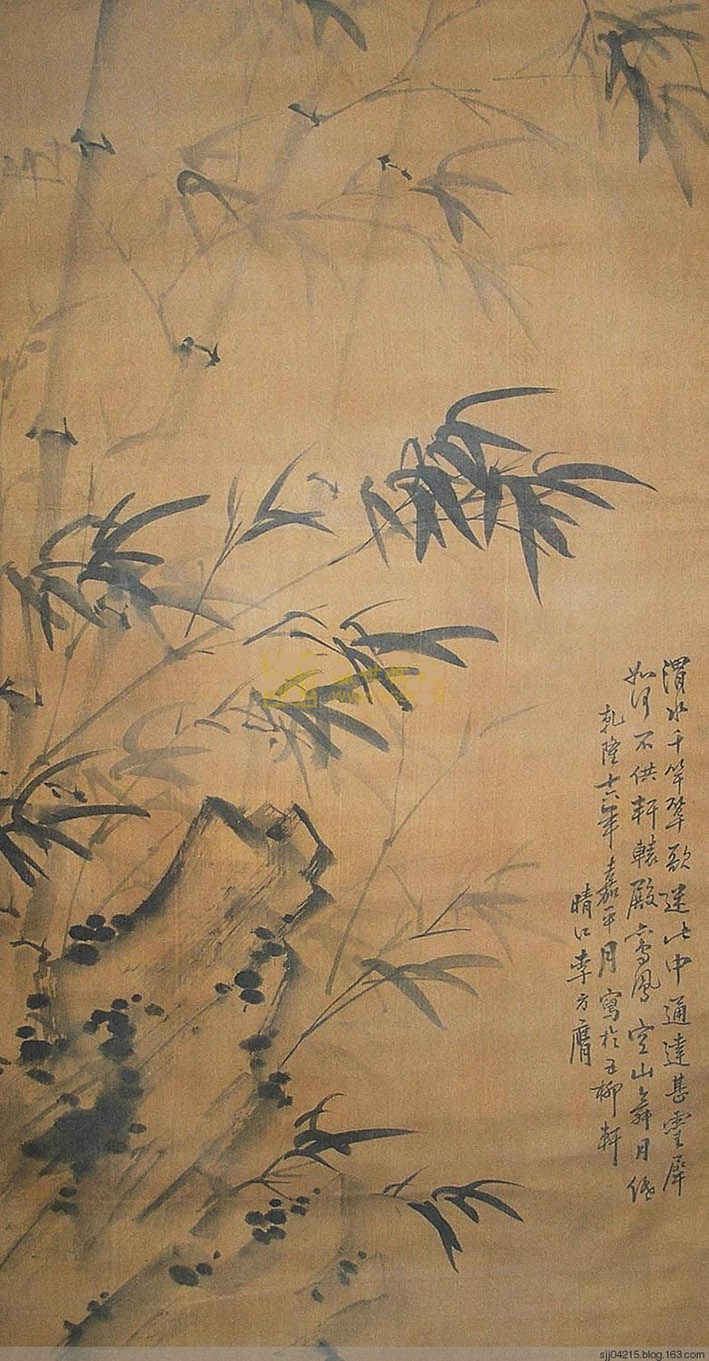 渭水千竿翠欲迷此中通達甚靈犀
如何不供軒轅殿鸞鳳空山舞月低
乾隆十六年嘉平月寫於五柳軒
晴江李方膺
sjj04215.blog.163.com